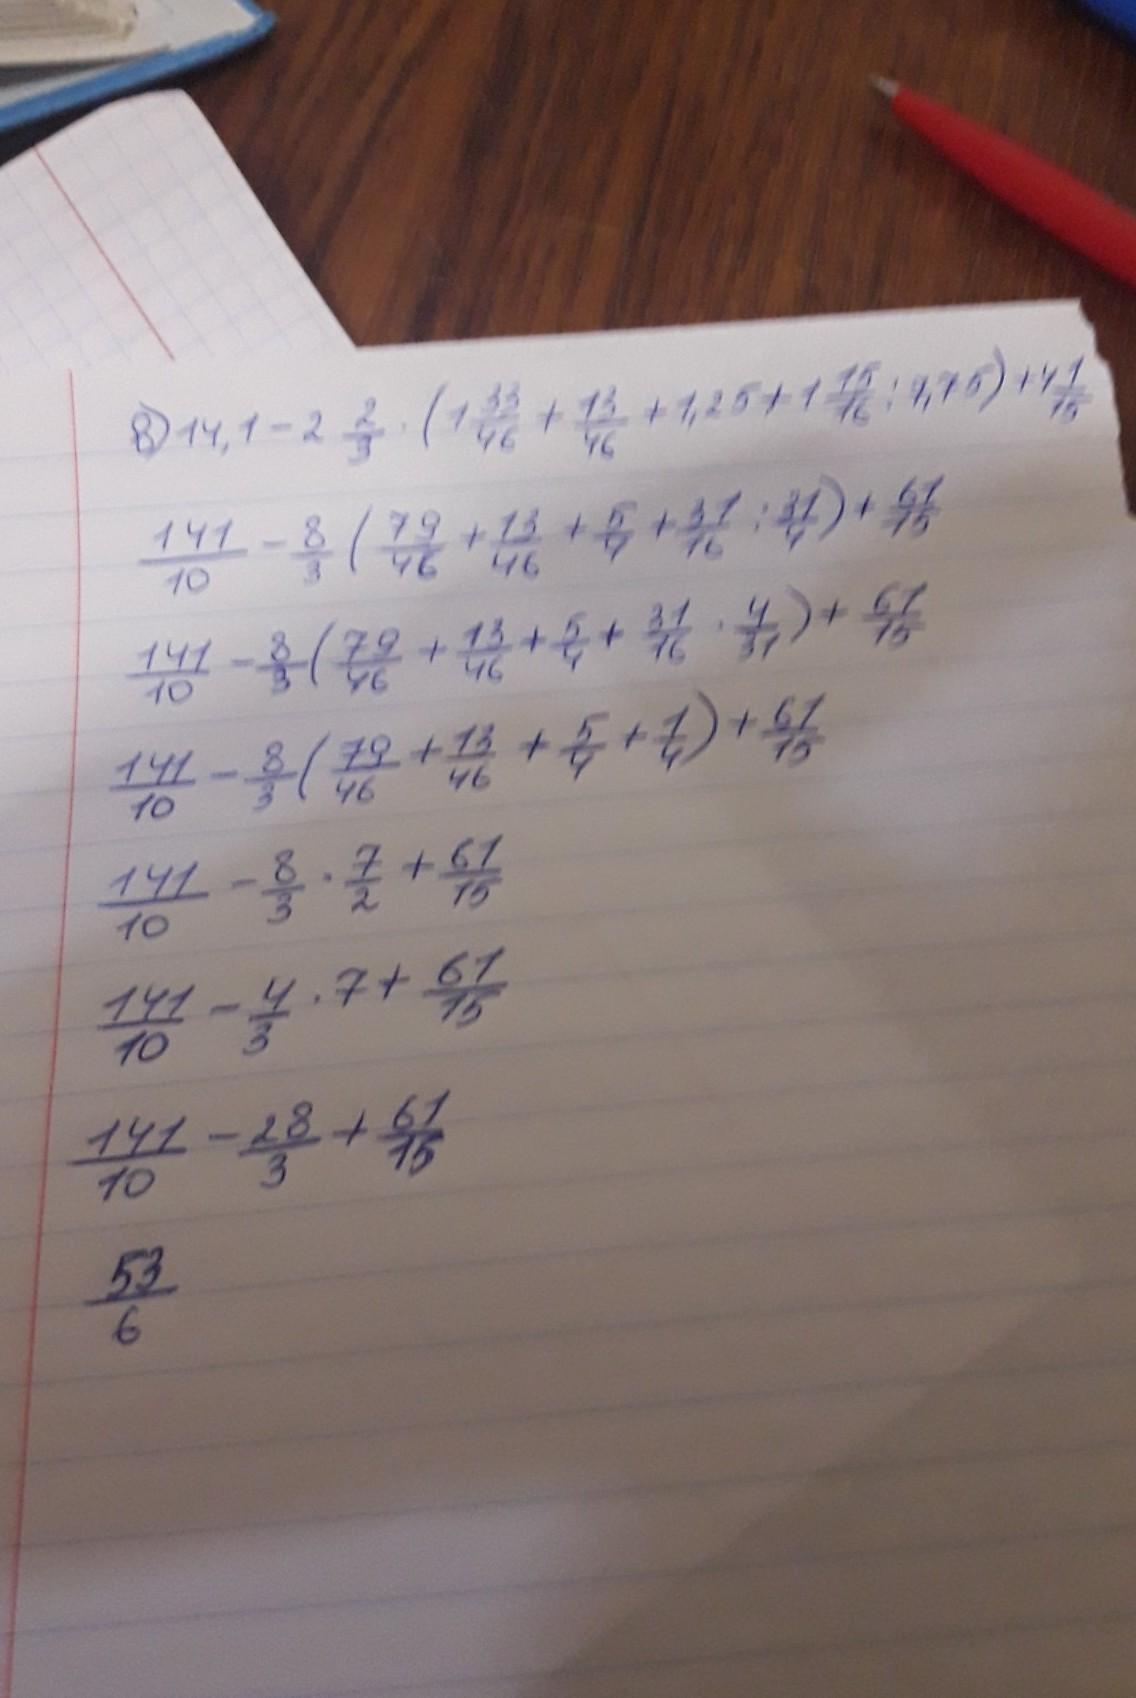 в) 14,1 - 2 2/3 · (1 33/46 + 13/46 + 1,25 + 1 15/16 : 7,75) + 4 1/15
141/10 - 8/3 (79/46 + 13/46 + 5/4 + 31/16 : 31/4) + 61/15
141/10 - 8/3 (79/46 + 13/46 + 5/4 + 31/16 · 4/31) + 61/15
141/10 - 8/3 (79/46 + 13/46 + 5/4 + 1/4) + 61/15
141/10 - 8/3 · 7/2 + 61/15
141/10 - 4/3 · 7 + 61/15
141/10 - 28/3 + 61/15
53/6